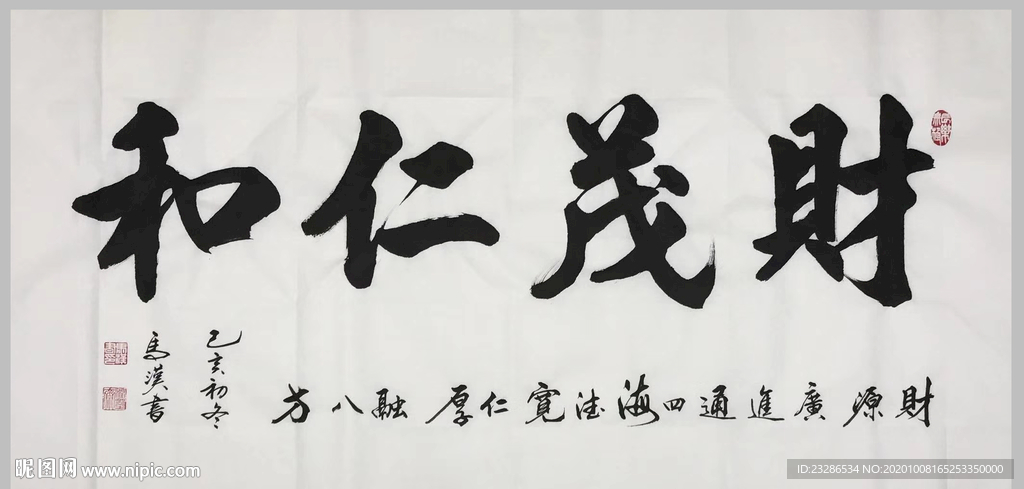 財茂仁和
財源廣進通四海德寬仁厚融八方
己亥初冬
馬漢書
昵图网 www.nipic.com
ID:23286534 NO:20201008165253350000